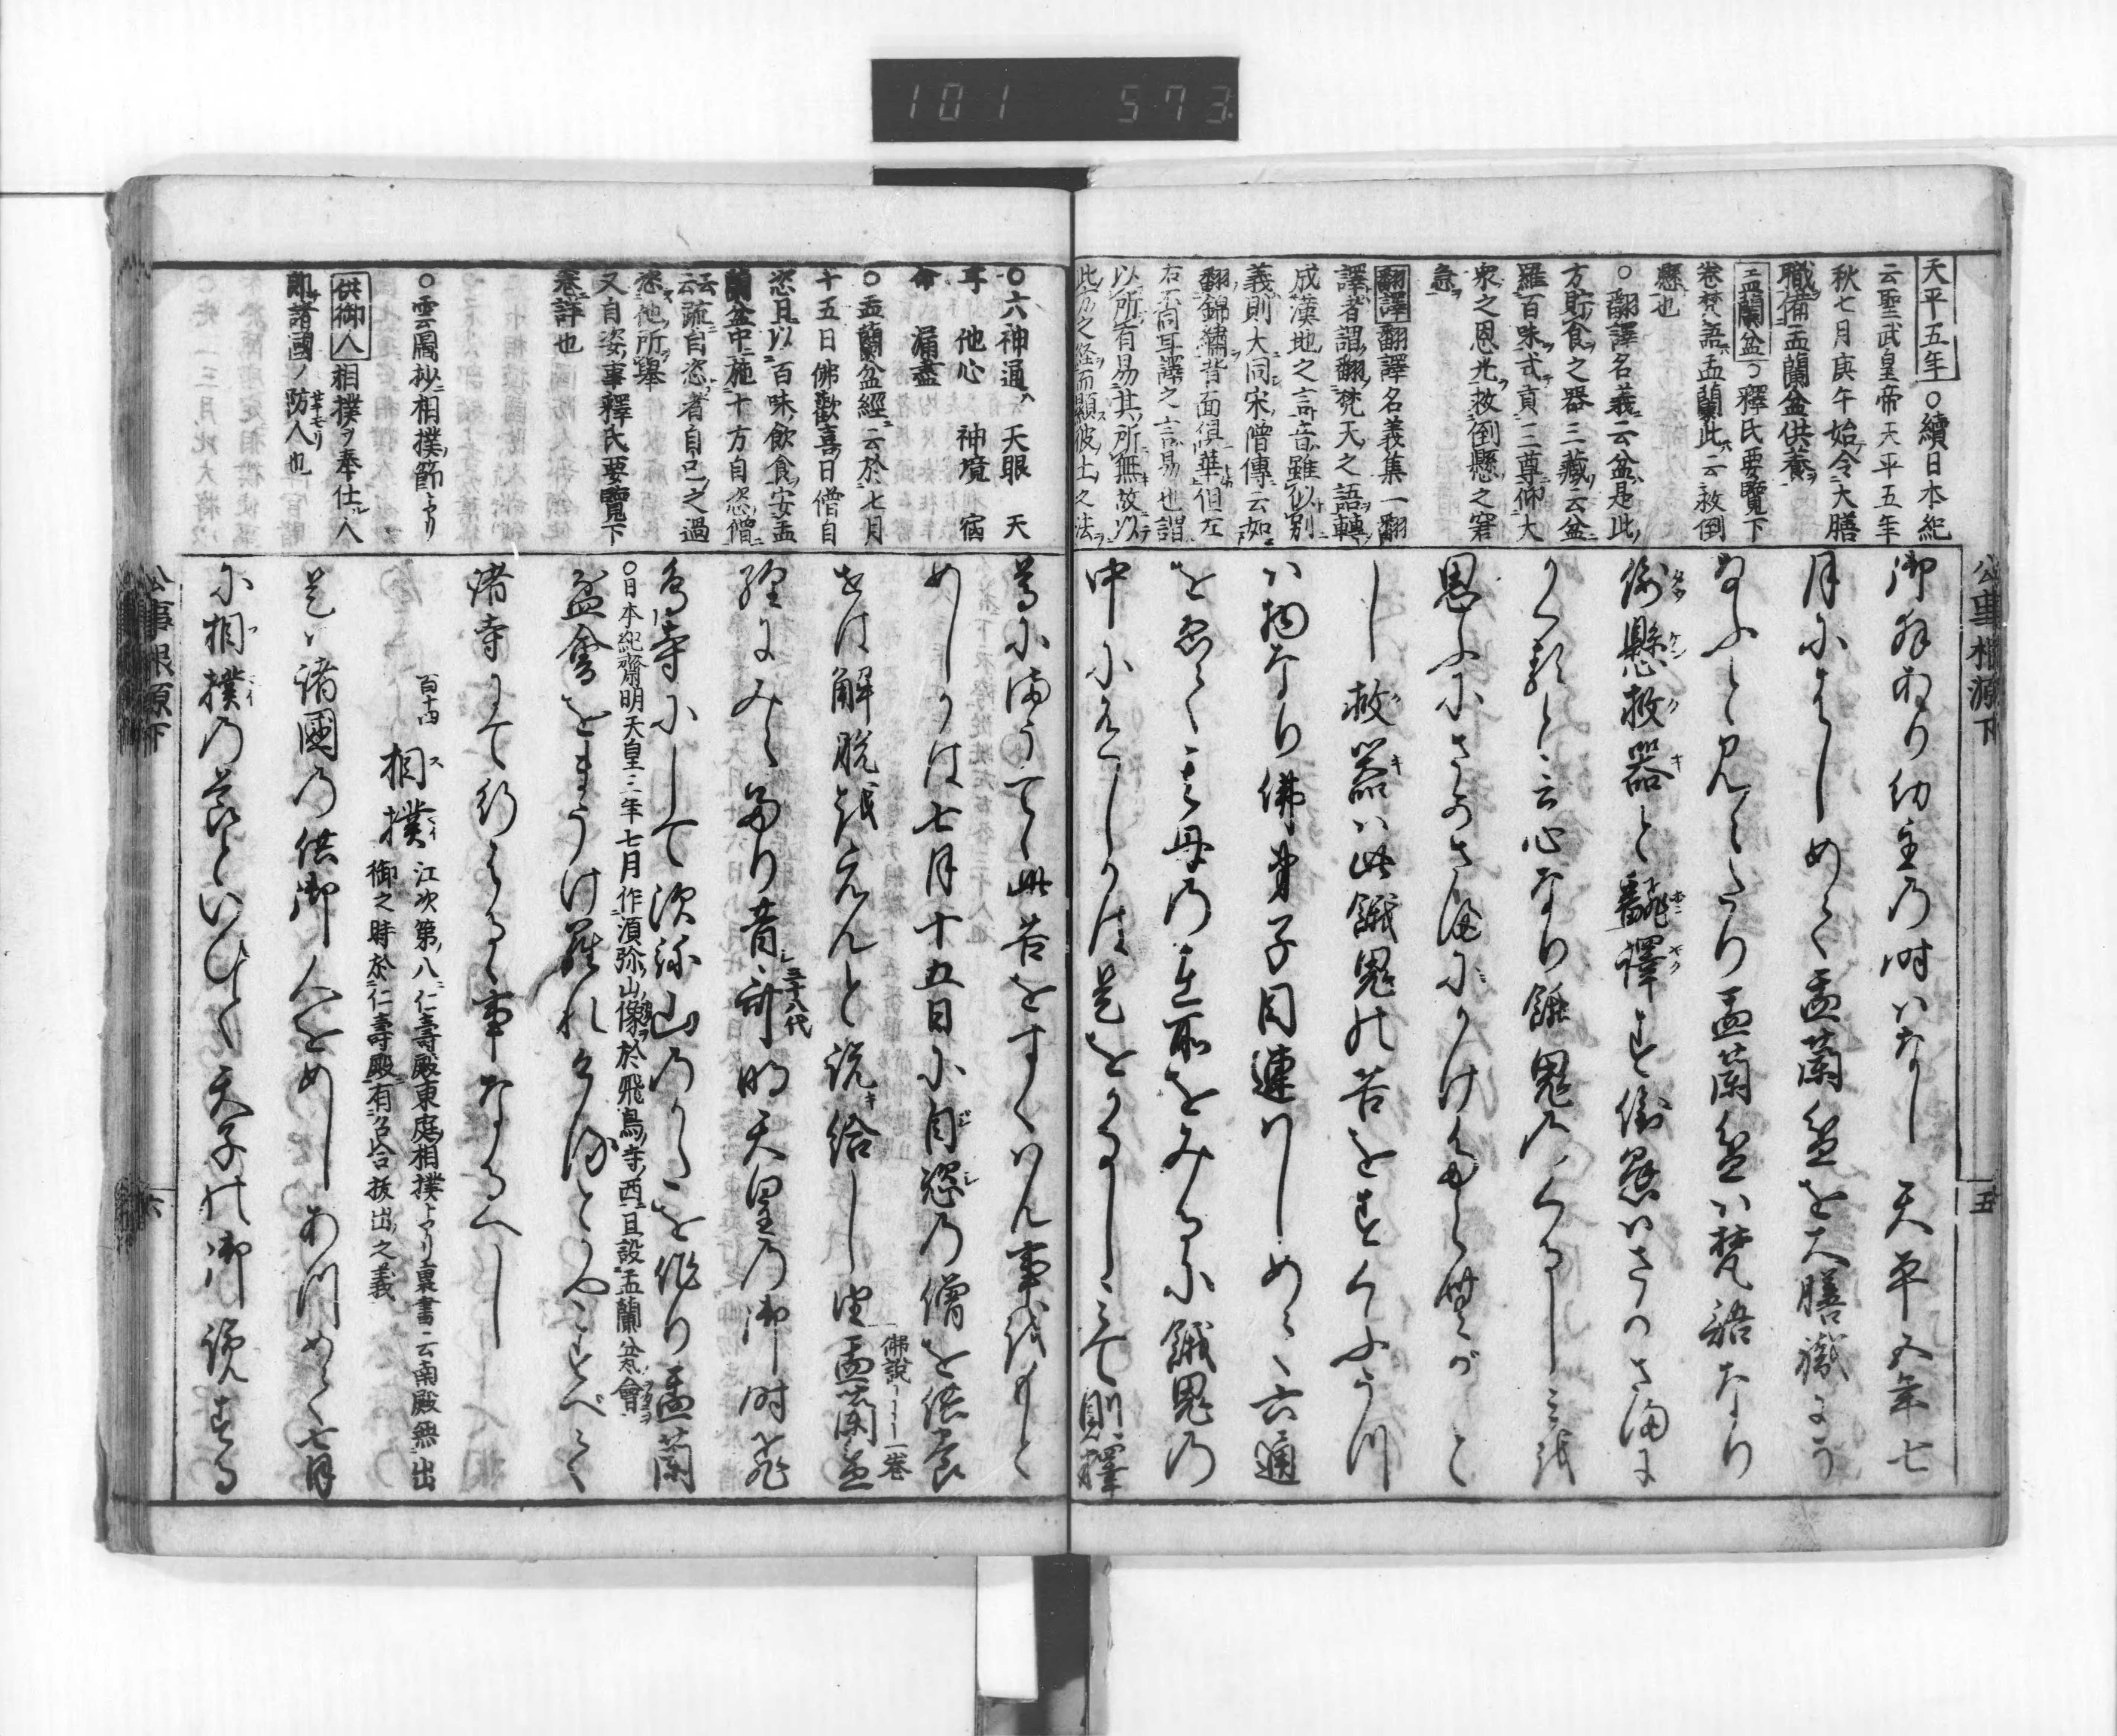 101 573
公事根源下
五
天平五年○續日本紀
云聖武皇帝天平五年
秋七月庚午始令大膳
職備盂蘭盆供養
盂蘭盆○釋氏要覽下
卷梵語盂蘭此云救倒
懸也
○翻譯名義云盆是此
方貯食之器三藏云盆
羅百味式貢三尊仰大
衆之恩光救倒懸之窘
急
翻譯翻譯名義集一翻
譯者謂翻梵天之語轉
成漢地之言音雖似別
義則大同宋僧傳云如
翻錦繡背面俱華但左
右不同耳譯之言易也謂
以所有易其所無故以
此方之経而顯彼土之法
御拜あり幼主の時はなし 天平五年七
月にはしめて盂蘭盆を大膳職にそ
なふと見えたり盂蘭盆は梵語なり
倒懸救器と翻譯す倒懸はさかさまに
かくると云心なり餓鬼のくるしみを
思ふにさかさまにかけたらむがこと
し救器は此餓鬼の苦をすくふうつ
は物なり佛弟子目連はしめて六通
をえて其母の在所をみるに餓鬼の
中に有しかは是をかなしみて則釋
○六神通 天眼 天
耳 他心 神境 宿
命 漏盡
○盂蘭盆經云於七月
十五日佛歡喜日僧自
恣日以百味飲食安盂
蘭盆中施十方自恣僧
云云䟽自恣者自己之過
恣他所舉
又自姿事釋氏要覽下
卷詳也
○雲圖抄相撲節ヨリ
供御人相撲ヲ奉仕ル人
即諸國ノ防人也
尊にまうて此苦をすくはん事をもと
めしかは七月十五日に自恣の僧を供養
せは解脱をえんと説給し由盂蘭盆
佛説｜｜｜一卷
經にみえたり昔齊明天皇の御時飛
三十八代
鳥寺にして須弥山のかたを作り盂蘭
○日本紀齋明天皇三年七月作須弥山像於飛鳥寺西且設盂蘭盆會
盆會をまうけ
諸寺にて行はるゝ事なるへし
百十四 相撲 江次第八仁壽殿東庭相撲ヨリ裏書云南殿無出
御之時於仁壽殿有召合抜出之義
是は諸國の供御人をめしあつめて七月
に相撲の節といひて天子の御覧する
公事根源下
六